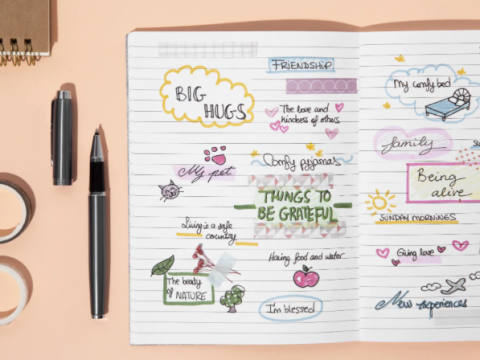 FRIENDSHIP
BIG
HUGS
The love and
kindness of others
My pet
Comfy pyjamas
THINGS TO
BE GRATEFUL
Living in a safe
country
Having food and water
The beauty
of NATURE
I'm blessed
My comfy bed
family
Being
alive
SUNDAY MORNINGS
Giving love
New experiences